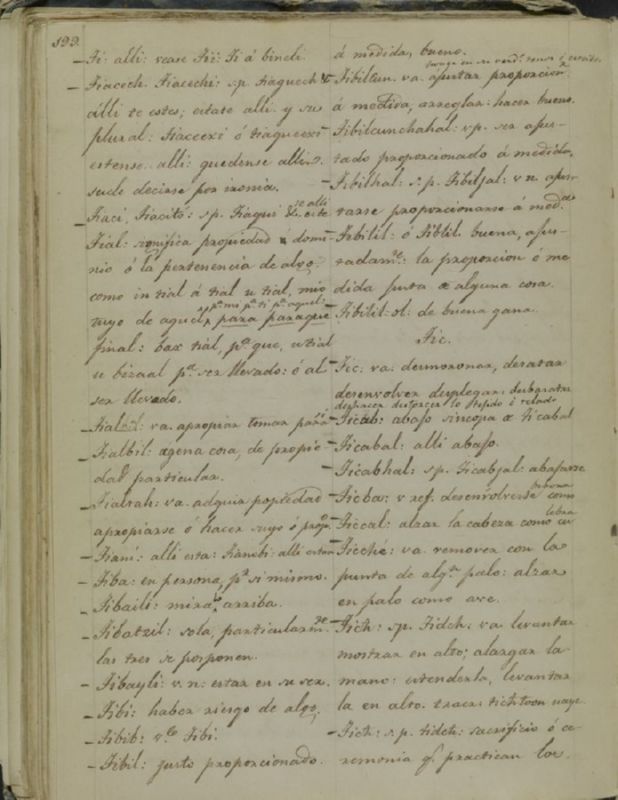 199.
– Ti: alli: vease Tii: Ti á binel:
– Tiacech. Tiacechi: s.p. tiaguech
álli te estes; estate alli y su
plural: tiaceexi ó tiagueexi
estense alli: quedense alli.
suele decirse por ironia.
– Tiaci, tiacitó: s.p. tiagui se alli
– Tial: significa propiedad ó domi
nio ó la pertenencia de algo:
como in tial á tial u tial, mio
tuyo de aquel, pª mi pª ti pª aquel: para paraque
final: bax tiál, pª que, u tial
u bizaal pª ser llevado: ó al
ser llevado.
– Tialbil: va. apropiar tomar para
– Tialbil: agena cosa, de propie
dad particular.
– Tialtah: va. adquirir propiedad
apropiarse ó hacer suyo ó propº
– Tiani: alli esta: tianobi: alli estan
– Tiba: en persona, pª si mismo.
– Tibaili: mira arriba.
– Tibatzil: sola, particularmte
las tres se posponen.
– Tibayli: v. n: estar en su ser.
– Tibi: haber riesgo de algo,
– Tibib: Tibi.
– Tibil: justo proporcionado.
á medida, bueno.
– Tibilcun. va. ajustar proporcion
á medida, arreglar: hacer bueno
– Tibilcunchahal: vp. ser ajus
tado proporcionado á medida,
– Tibilhal: s.p. Tibiljal: v n ajus
tarse proporcionarse á medda
– Tibilil: ó Tiblil buena, ajus
tadamte: la proporcion ó me
dida justa de alguna cosa
– Tibilil: ol: de buena gana.
Tic.
– Tic: va: desmoronar, desatar
desenvolver desplegar: desbaratar
deshacer destorcer lo tejido
– Ticab: abajo sincopa de ticabal
– Ticabal: alli abajo.
– Ticabhal: s.p. Ticabjal: abajarse
– Ticba: v ref. desenvolverse como
– Ticcal: alzar la cabeza como cu
lebra
– Ticché: va. remover con la
punta de algn palo: alzar
en palo como ave.
– Tich: s.p. Tidch: va levantar
mostrar en alto; alargar la
mano: estenderla, levantar
la en alto. traer: tichtoon
– Tich: s.p. tidch: sacrificio ó ce
remonia q. practican los